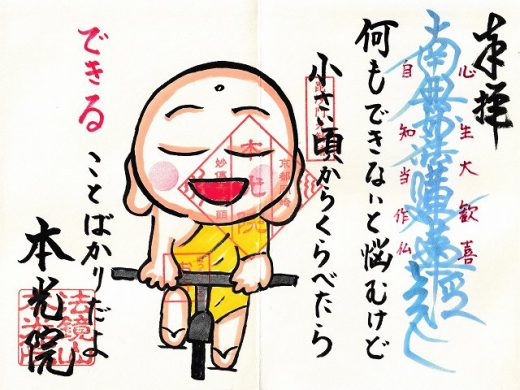 奉拝
南無妙法蓮華経
心生大歓喜
自知当作仏
何もできないと悩むけど
小さい頃からくらべたら
できる
ことばかりだよ
本光院
本光院
法鏡山